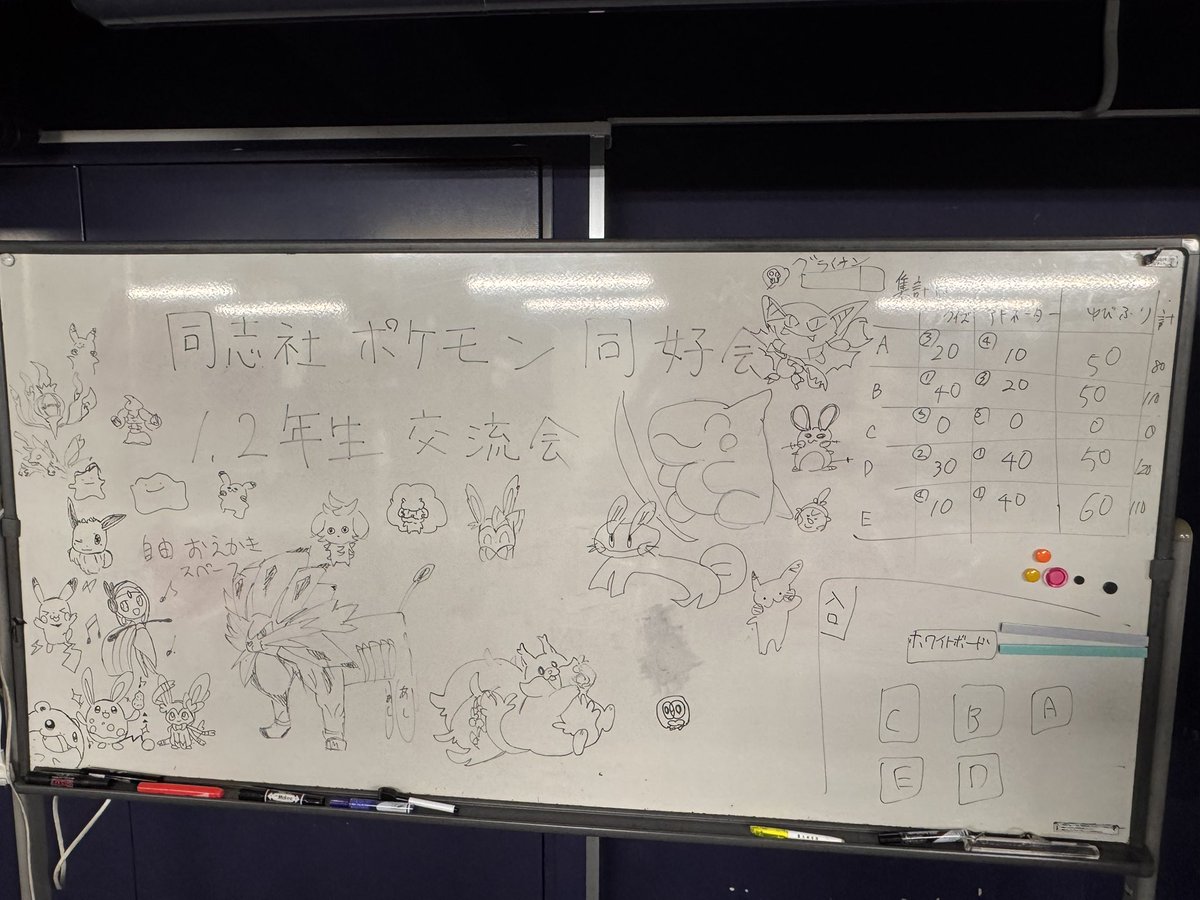 同志社 ポケモン 同好会
1,2年生 交流会
自由 おえかき
スペース
集計
クイズ ゆびふり 計
A ③20 ④10 50 80
B ①40 ③20 50 110
C ⑤0 ⑤0 0 0
D ②30 ①40 50 120
E ④10 ①40 60 110
ホワイトボード
C B A
E D